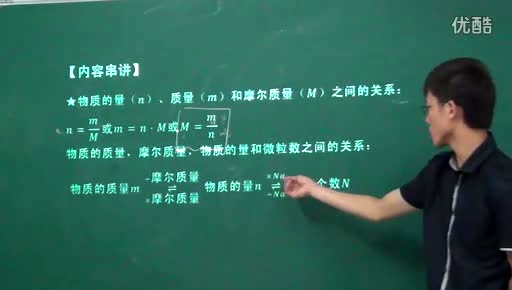 优酷
【内容串讲】
★物质的量（n）、质量（m）和摩尔质量（M）之间的关系：
n = m/M 或 m = n · M 或 M = m/n
物质的质量，摩尔质量，物质的量和微粒数之间的关系：
÷摩尔质量 ×Na
物质的质量m ⇌ 物质的量n ⇌ 个数N
×摩尔质量 ÷Na